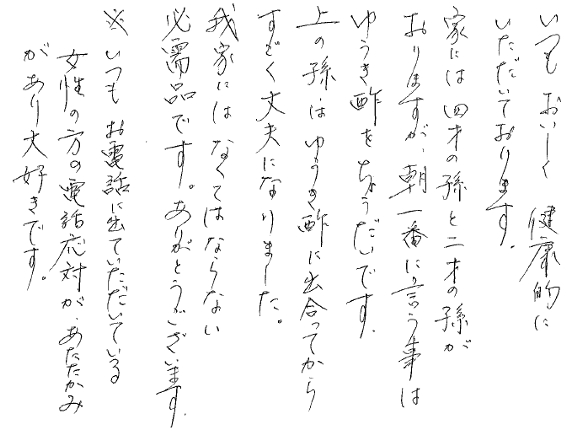 いつも おいしく 健康的に
いただいております。
家には 四才の孫と二才の孫が
おりますが、朝一番に言う事は
ゆうき酢をちょうだいです。
上の孫は ゆうき酢に出合ってから
すごく丈夫になりました。
我家には なくてはならない
必需品です。ありがとうございます。
※いつも お電話に出ていただいている
女性の方の電話応対が、あたたかみ
があり大好きです。